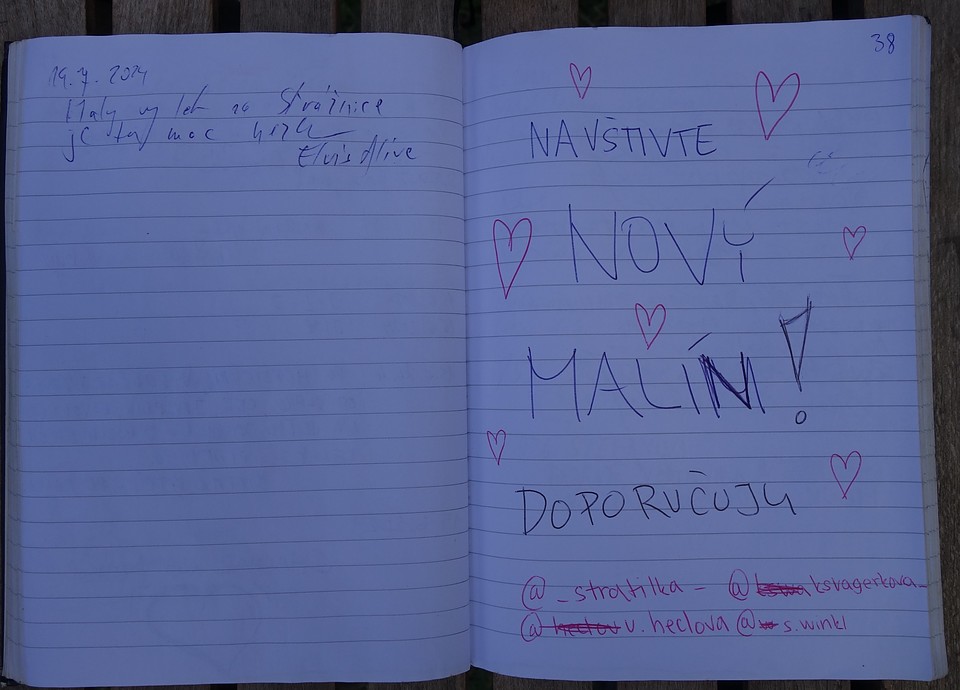 19.7.2024
Malý výlet na Strážnice
je tu moc hezky
Elvis Alive
38
NAVŠTIVTE
NOVÝ
MALÍN!
DOPORUČUJU
@_stratilka_ @ksvagerkova_
@v.heclova @s.winkl